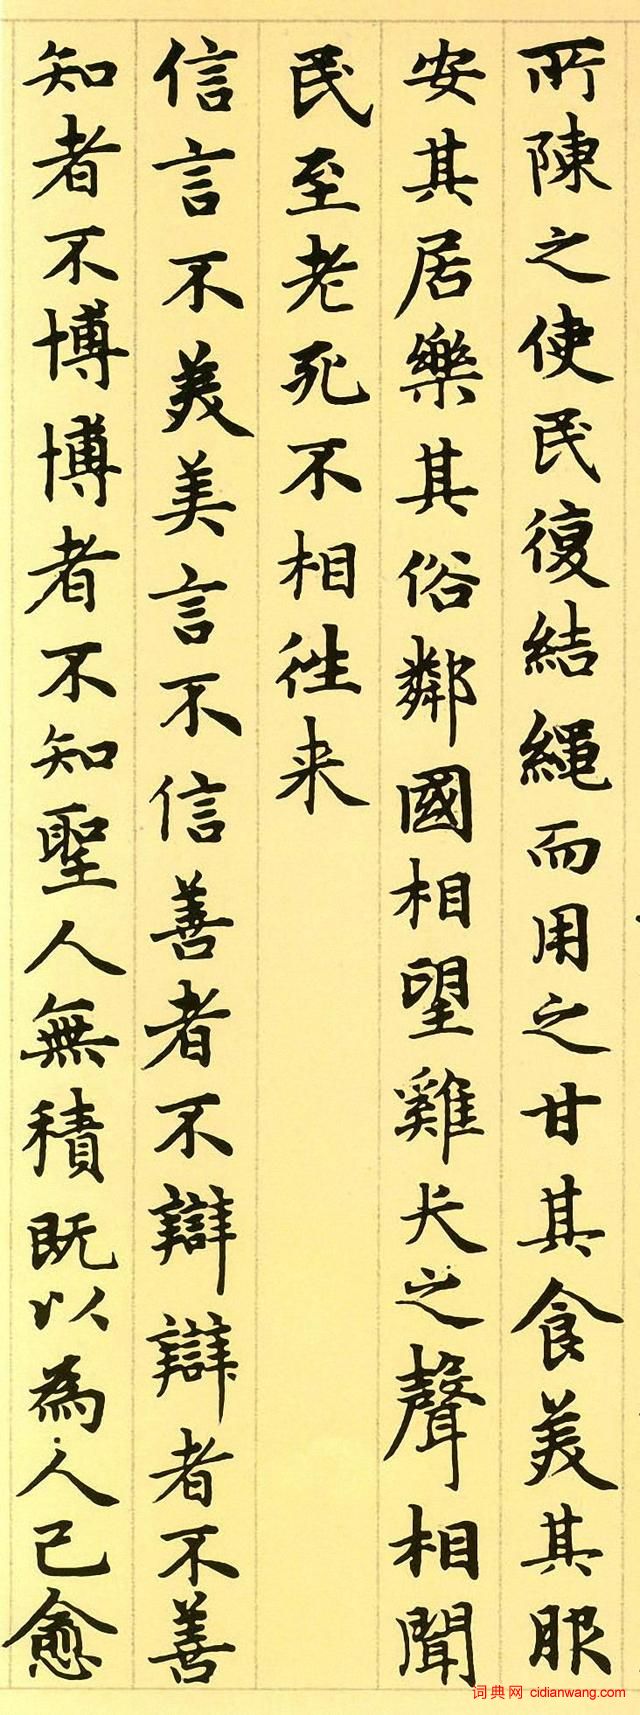 所陳之使民復結繩而用之甘其食美其服
安其居樂其俗鄰國相望雞犬之聲相聞
民至老死不相往来
信言不美美言不信善者不辯辯者不善
知者不博博者不知聖人無積既以為人己愈
词典网 cidianwang.com